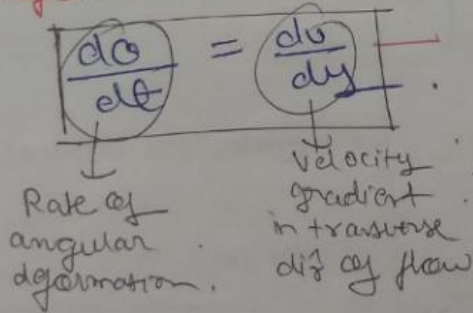 dθ/dt = du/dy
Rate of
angular
deformation.
velocity
gradient
in transverse
dirⁿ of flow